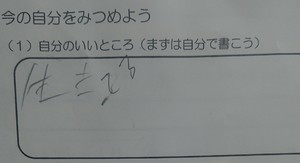 今の自分をみつめよう
(1) 自分のいいところ(まずは自分で書こう)